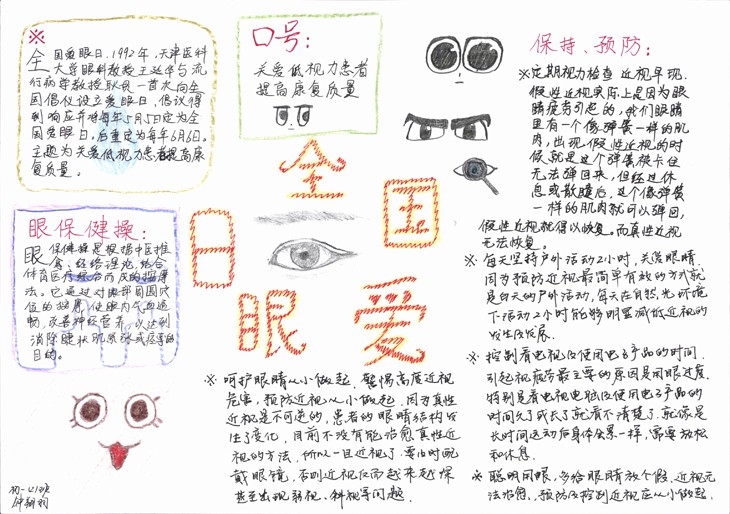 ※
全国爱眼日.1992年,天津医科
大学眼科教授王延华与流
行病学教授耿贯一首次向全
国倡议设立爱眼日,倡议得
到响应并将每年5月5日定为全
国爱眼日.后重定为每年6月6日.
主题为关爱低视力患者提高康
复质量.
口号:
关爱低视力患者
提高康复质量
眼保健操:
眼保健操是根据中医推
拿、经络理论,结合
体育医疗综合而成的按摩
法。它通过对眼部周围穴
位的按摩,使眼内气血通
畅,改善神经营养,以达到
消除睫状肌紧张或痉挛的
目的。
全
国
爱
眼
日
※ 呵护眼睛从小做起,警惕高度近视
危害,预防近视从小做起.因为真性
近视是不可逆的,患者的眼睛结构发
生了变化,目前不没有能治愈真性近
视的方法,所以一旦近视了,要由时配
戴眼镜,否则近视反而越来越深
甚至出现弱视、斜视等问题.
保持、预防:
※定期视力检查 近视早现.
假性近视实际上是因为眼
睛疲劳引起的,我们眼睛
里有一个像弹簧一样的肌
肉,出现假性近视的时
候,就是这个弹簧被卡住
无法弹回来,但经过休
息或散瞳后,这个像弹簧
一样的肌肉就可以弹回,
假性近视就得以恢复。而真性近视
无法恢复。
※ 每天坚持户外活动2小时,关爱眼睛.
因为预防近视最简单有效的方式就
是白天的户外活动,每天在自然光环境
下活动2小时能够明显减低近视的
发生及发展.
※ 控制看电视及使用电子产品的时间.
引起视疲劳最主要的原因是用眼过度.
特别是看电视电脑及使用电子产品的
时间久了或长了就看不清楚了.就像是
长时间运动后身体会累一样,需要放松
和休息.
※ 聪明用眼,多给眼睛放个假.近视无
法治愈.预防及控制近视应从小做起.
初一(1)班